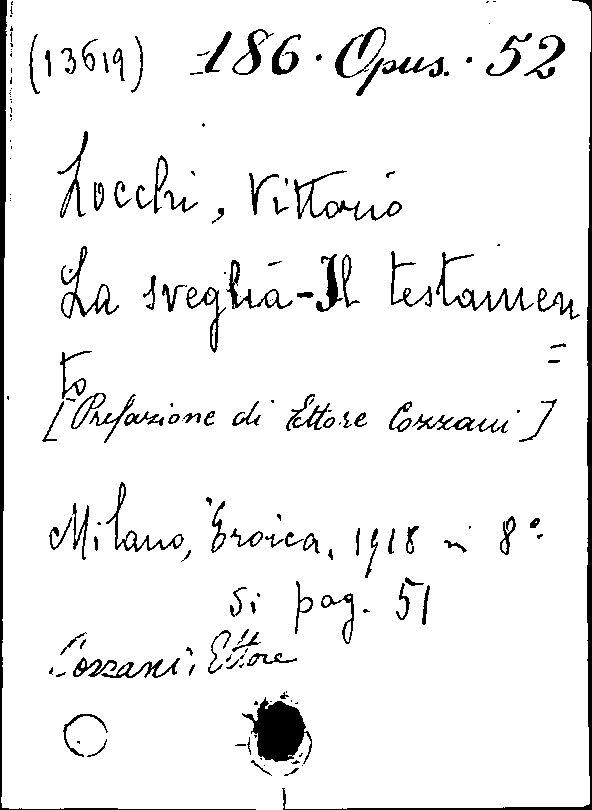 (13619) 186. Opus. 52
Locchi, Vittorio
La sveglia-Il testamen
=
to
[Prefazione di Ettore Cozzani]
Milano, Eroica, 1918 in 8°.
di pag. 51
Cozzani, Ettore